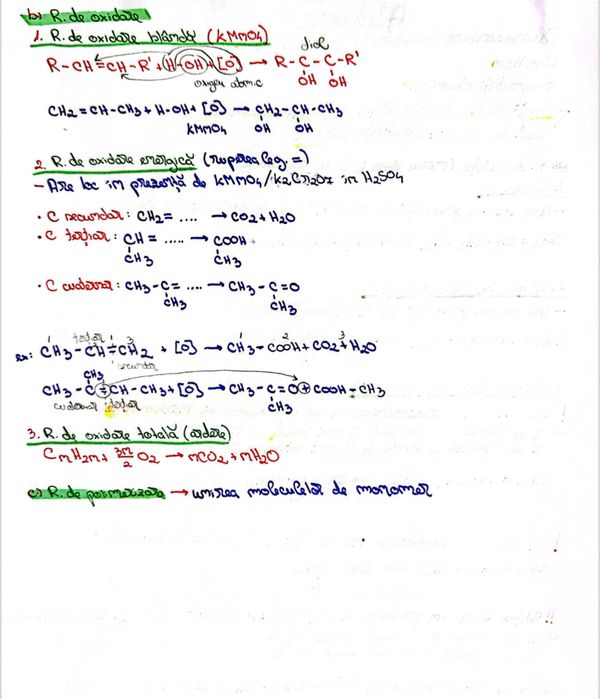 b) R. de oxidare
1. R. de oxidare blândă (KMnO4)
diol
R-CH=CH-R' + H-OH + [O] → R-C-C-R'
oxigen atomic OH OH
CH2=CH-CH3 + H-OH + [O] → CH2-CH-CH3
KMnO4 OH OH
2. R. de oxidare energică (ruperea leg. =)
- Are loc în prezență de KMnO4/K2Cr2O7 în H2SO4
• C secundar: CH2= .... → CO2+H2O
• C terțiar: CH= ..... → COOH
CH3 CH3
• C cuaternar: CH3-C= .... → CH3-C=O
CH3 CH3
terțiar
Ex: CH3-CH=CH2 + [O] → CH3-COOH+CO2+H2O
secundar
CH3
CH3-C=CH-CH3+[O] → CH3-C=O+COOH-CH3
cuaternar terțiar CH3
3. R. de oxidare totală (ardere)
CnH2n + 3n/2 O2 → nCO2 + nH2O
c) R. de polimerizare → unirea moleculelor de monomer